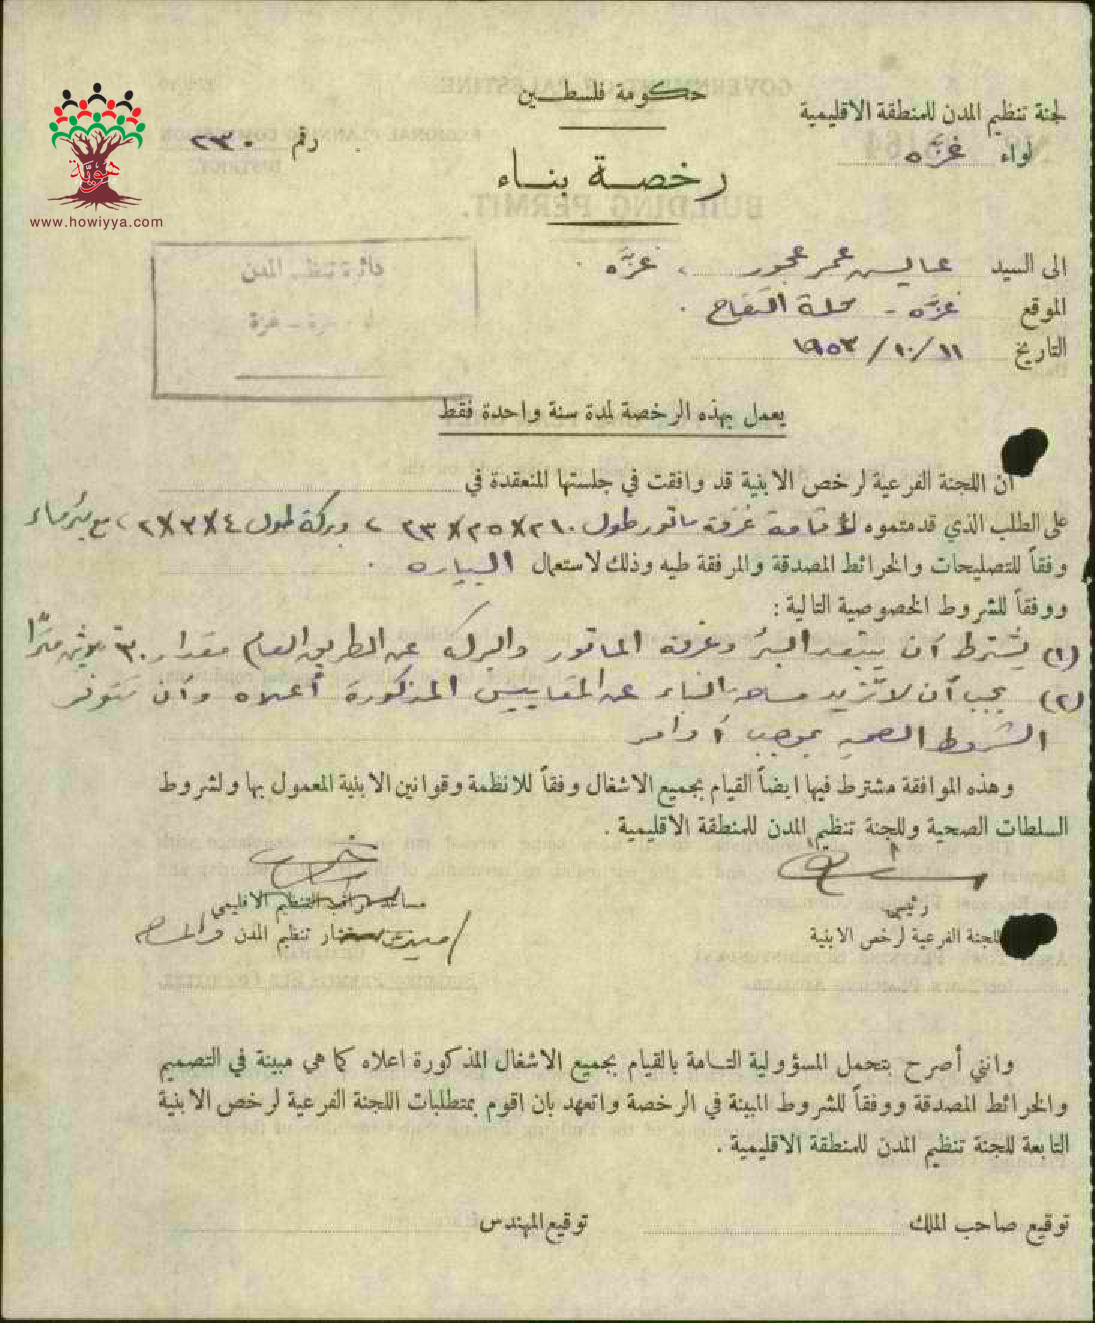 حكومة فلسطين
لجنة تنظيم المدن للمنطقة الاقليمية
لواء غزه
رقم ٢٣٠
رخصة بناء
هوية
www.howiyya.com
الى السيد عمر عجور ، غزه .
الموقع غزه - محلة التفاح .
التاريخ ١١/١٠/١٩٥٣
دائرة تنظيم المدن
غزة
يعمل بهذه الرخصة لمدة سنة واحدة فقط
ان اللجنة الفرعية لرخص الابنية قد وافقت في جلستها المنعقدة في
على الطلب الذي قدمتموه لاقامة غرفة ماتور طول وبركة طول ٤×٣×٢ ، مع بئر ماء
وفقاً للتصليحات والخرائط المصدقة والمرفقة طيه وذلك لاستعمال البياره .
ووفقاً للشروط الخصوصية التالية :
(١) يشترط أن يبتعد البئر وغرفة الماتور والبرك عن الطريق العام مقدار ٣٠ متراً
(٢) يجب أن لا تزيد مساحة البناء عن المقاييس المذكورة أعلاه وأن تتوفر
الشروط الصحيه بموجب أوامر
وهذه الموافقة مشترط فيها ايضاً القيام بجميع الاشغال وفقاً للانظمة وقوانين الابنية المعمول بها ولشروط
السلطات الصحية وللجنة تنظيم المدن للمنطقة الاقليمية .
رئيس
اللجنة الفرعية لرخص الابنية
مساعد مراقب التنظيم الاقليمي
تنظيم المدن
وانني أصرح بتحمل المسؤولية التامة بالقيام بجميع الاشغال المذكورة اعلاه كما هي مبينة في التصميم
والخرائط المصدقة ووفقاً للشروط المبينة في الرخصة واتعهد بان اقوم بمتطلبات اللجنة الفرعية لرخص الابنية
التابعة للجنة تنظيم المدن للمنطقة الاقليمية .
توقيع صاحب الملك
توقيع المهندس